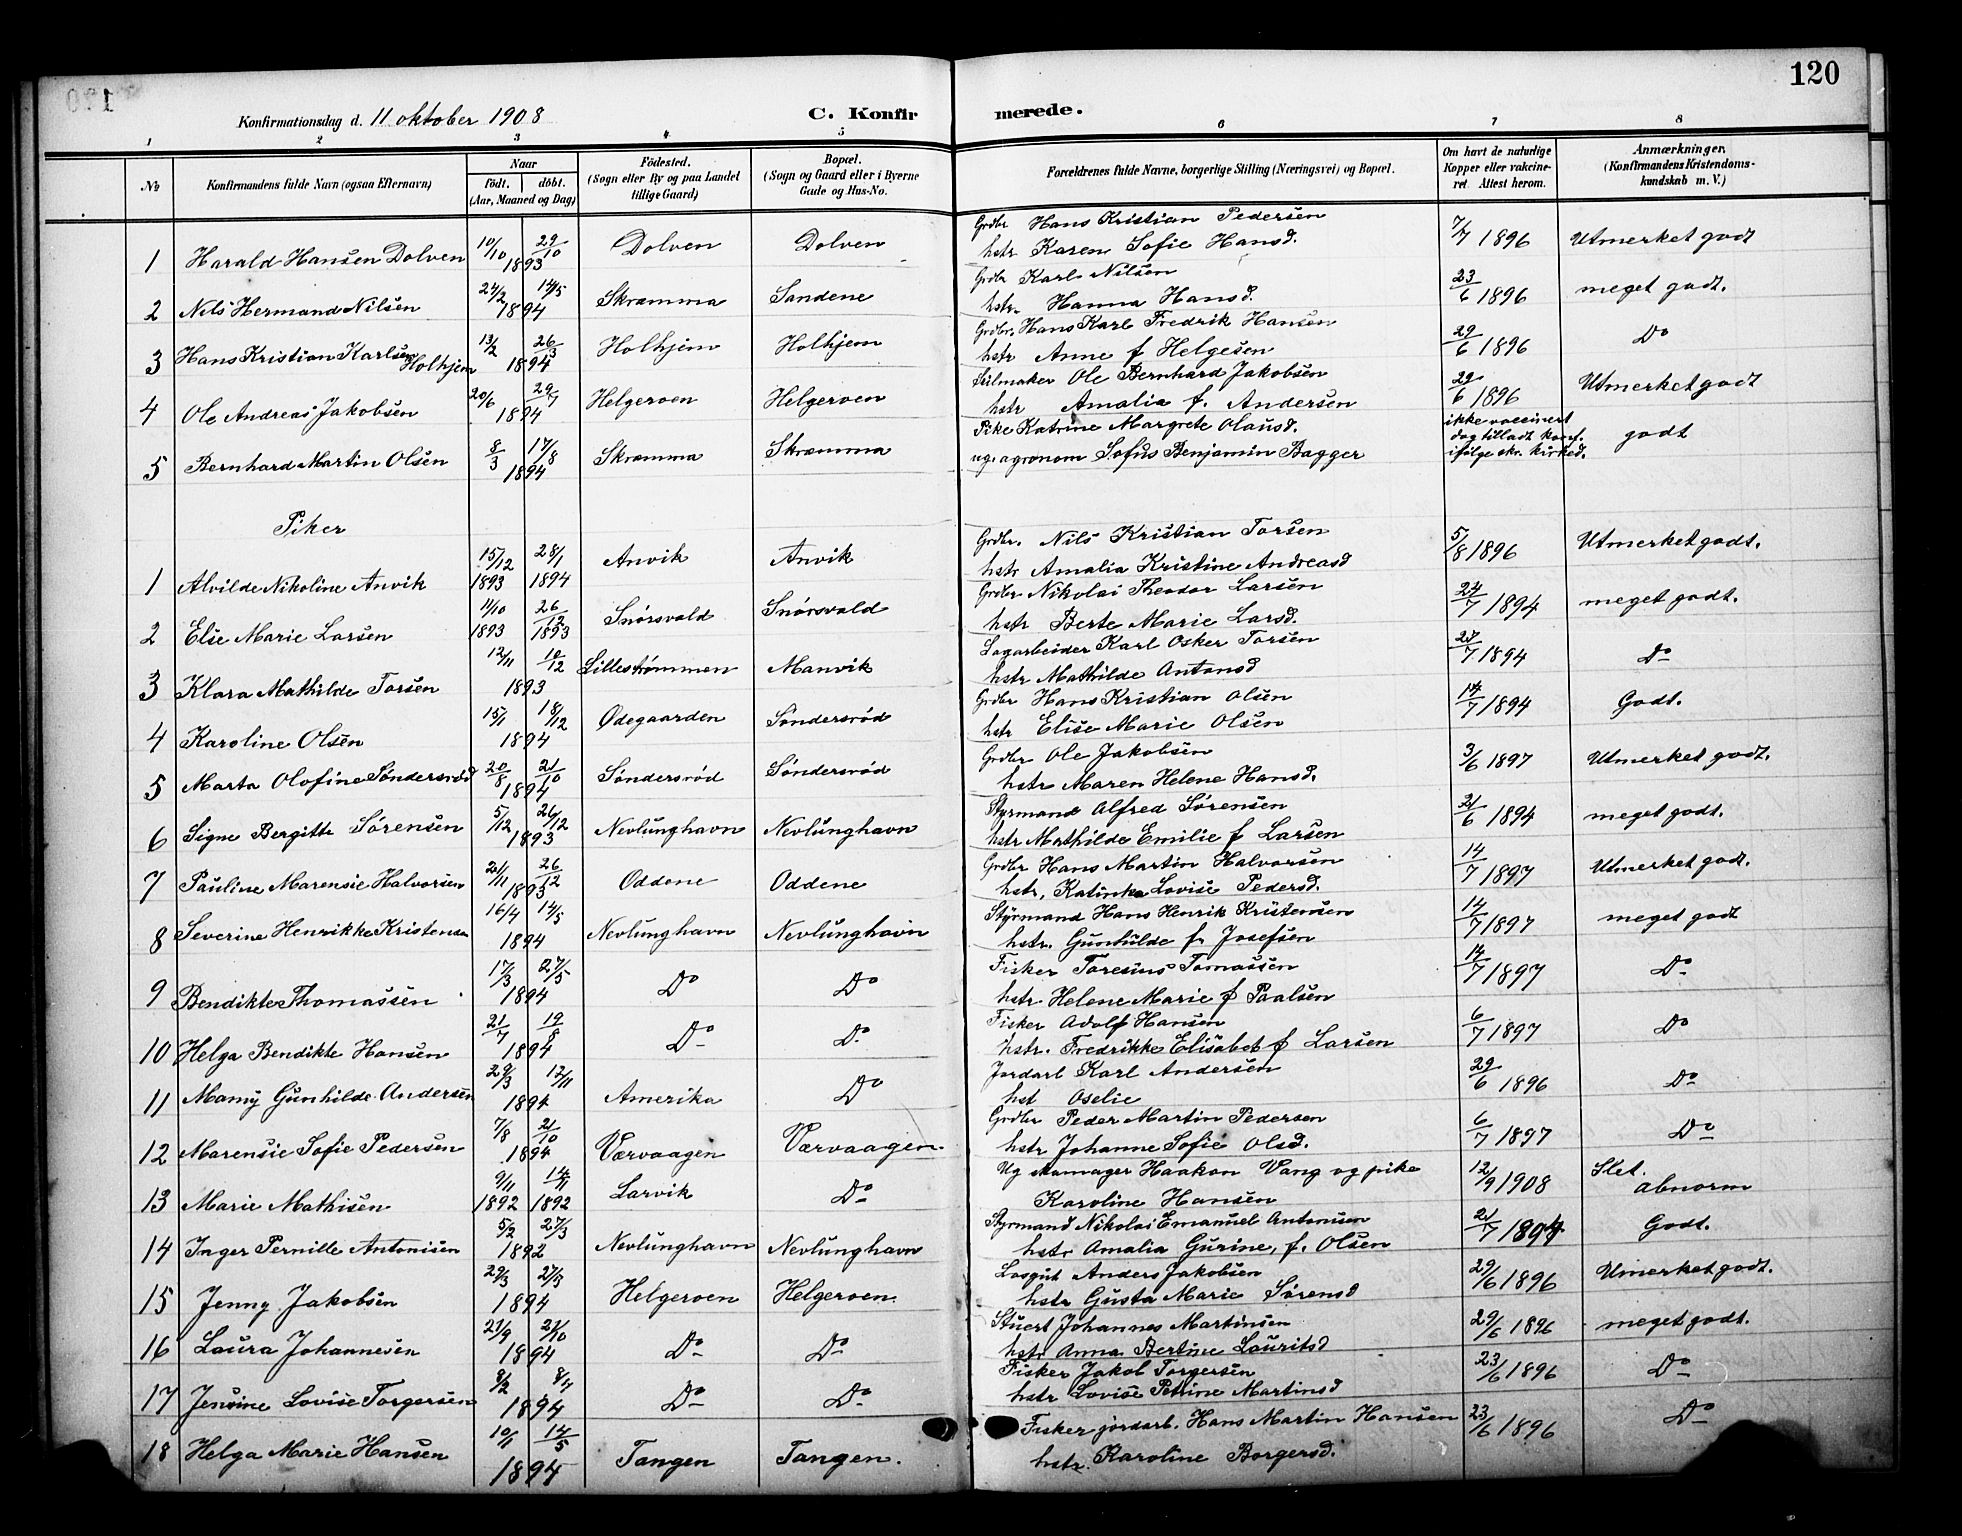 120
Konfirmationsdag d. 11 oktober 1908 C. Konfirmerede.
1 2 3 4 5 6 7 8
No
Konfirmandens fulde Navn (ogsaa Efternavn)
Naar
födt. döbt.
(Aar, Maaned og Dag)
Födested.
(Sogn eller By og paa Landet
tillige Gaard)
Bopæl.
(Sogn og Gaard eller i Byerne
Gade og Hus-No.
Forældrenes fulde Navne, borgerlige Stilling (Næringsvei) og Bopæl.
Om havt de naturlige
Kopper eller vakcine-
ret. Attest herom.
Anmærkninger.
(Konfirmandens Kristendoms-
kundskab m. V.)
1 Harald Hansen Dolven 10/10 29/10 1893 Dolven Dolven Grdbr Hans Kristian Pedersen 7/7 1896 Utmerket godt
hstr Karen Sofie Hansd.
2 Nils Hermand Nilsen 24/2 14/5 1894 Skræmma Sandene Grdbr Karl Nilsen 23/6 1896 meget godt.
hstr. Hanna Hansd.
3 Hans Kristian Karlsen Holhjem 13/2 26/3 1894 Holhjem Holhjem Grdbr. Hans Karl Fredrik Hansen 29/6 1896 Do
hstr Anne f Helgesen
4 Ole Andreas Jakobsen 20/6 29/7 1894 Helgeroen Helgeroen Seilmaker Ole Bernhard Jakobsen 29/6 1896 Utmerket godt
hstr Amalia f. Andersen
5 Bernhard Martin Olsen 8/3 17/8 1894 Skræmma Skræmma Pike Katrine Margrete Olausd. ikke vaccinert
dog tilladt konf.
ifølge skr. kirked. godt
ug. agronom Sofus Benjamin Bagger
Piker
1 Alvilde Nikoline Anvik 15/12 1893 28/1 1894 Anvik Anvik Grdbr. Nils Kristian Torsen 5/8 1896 Utmerket godt.
hstr Amalia Kristine Andreasd
2 Else Marie Larsen 11/10 1893 26/12 1893 Snørsvald Snørsvald Grdbr Nikolai Theodor Larsen 24/7 1894 meget godt.
hstr Berte Marie Larsd.
3 Klara Mathilde Torsen 12/11 10/12 1893 Lillestrømmen Manvik Sagarbeider Karl Osker Torsen 27/7 1894 Do
hstr Mathilde Antonsd
4 Karoline Olsen 15/1 18/12 1894 Ødegaarden Søndersrød Grdbr Hans Kristian Olsen 14/7 1894 Godt.
hstr Elise Marie Olsen
5 Marta Olofine Søndersrød 20/8 21/10 1894 Søndersrød Søndersrød Grdbr Ole Jakobsen 3/6 1897 Utmerket godt.
hstr Maren Helene Hansd.
6 Signe Bergitte Sørensen 5/12 26/12 1893 Nevlunghavn Nevlunghavn Styrmand Alfred Sørensen 21/6 1894 meget godt.
hstr Mathilde Emilie f Larsen
7 Pauline Marensie Halvorsen 21/11 26/12 1893 Oddene Oddene Grdbr Hans Martin Halvorsen 14/7 1897 Utmerket godt.
hstr. Katinka Lovise Pedersd.
8 Severine Henrikke Kristensen 16/4 14/5 1894 Nevlunghavn Nevlunghavn Styrmand Hans Henrik Kristensen 14/7 1897 meget godt
hstr. Gunhilde f. Josefsen
9 Bendikte Thomassen 17/3 27/5 1894 Do Do Fisker Toresius Tomassen 14/7 1897 Do
hstr. Helene Marie f Paalsen
10 Helga Bendikte Hansen 21/7 19/8 1894 Do Do Fisker Adolf Hansen 6/7 1897 Do
hstr. Fredrikke Elisabet f Larsen
11 Mamy Gunhilde Andersen 29/3 12/11 1894 Amerika Do Jordarb Karl Andersen 29/6 1896 Do
hst Oselie
12 Marensie Sofie Pedersen 7/8 21/10 1894 Værvaagen Værvaagen Grdbr Peder Martin Pedersen 6/7 1897 Do
hstr Johanne Sofie Olsd.
13 Marie Mathisen 9/11 1892 14/11 1892 Larvik Do Ug skomager Haakon Vang og pike 12/9 1908 Slet. abnorm
Karoline Hansen
14 Inger Pernille Antonisen 5/2 27/3 1892 Nevlunghavn Nevlunghavn Styrmand Nikolai Emanuel Antonisen 21/7 1894 Godt.
hstr Amalia Gurine, f. Olsen
15 Jenny Jakobsen 29/3 27/5 1894 Helgeroen Helgeroen Losgut Anders Jakobsen 29/6 1896 Umerket godt.
hstr Gusta Marie Sørensd
16 Laura Johannesen 21/9 21/10 1894 Do Do Stuert Johannes Martinsen 29/6 1896 meget godt.
hstr Anna Bertine Lauritsd
17 Jensine Lovise Torgersen 8/2 8/4 1894 Do Do Fisker Jakob Torgersen 23/6 1896 Do
hstr Lovise Petrine Martinsd
18 Helga Marie Hansen 10/1 14/5 1894 Tangen Tangen. Fisker jordarb. Hans Martin Hansen 23/6 1896 Do
hstr. Karoline Borgersd.